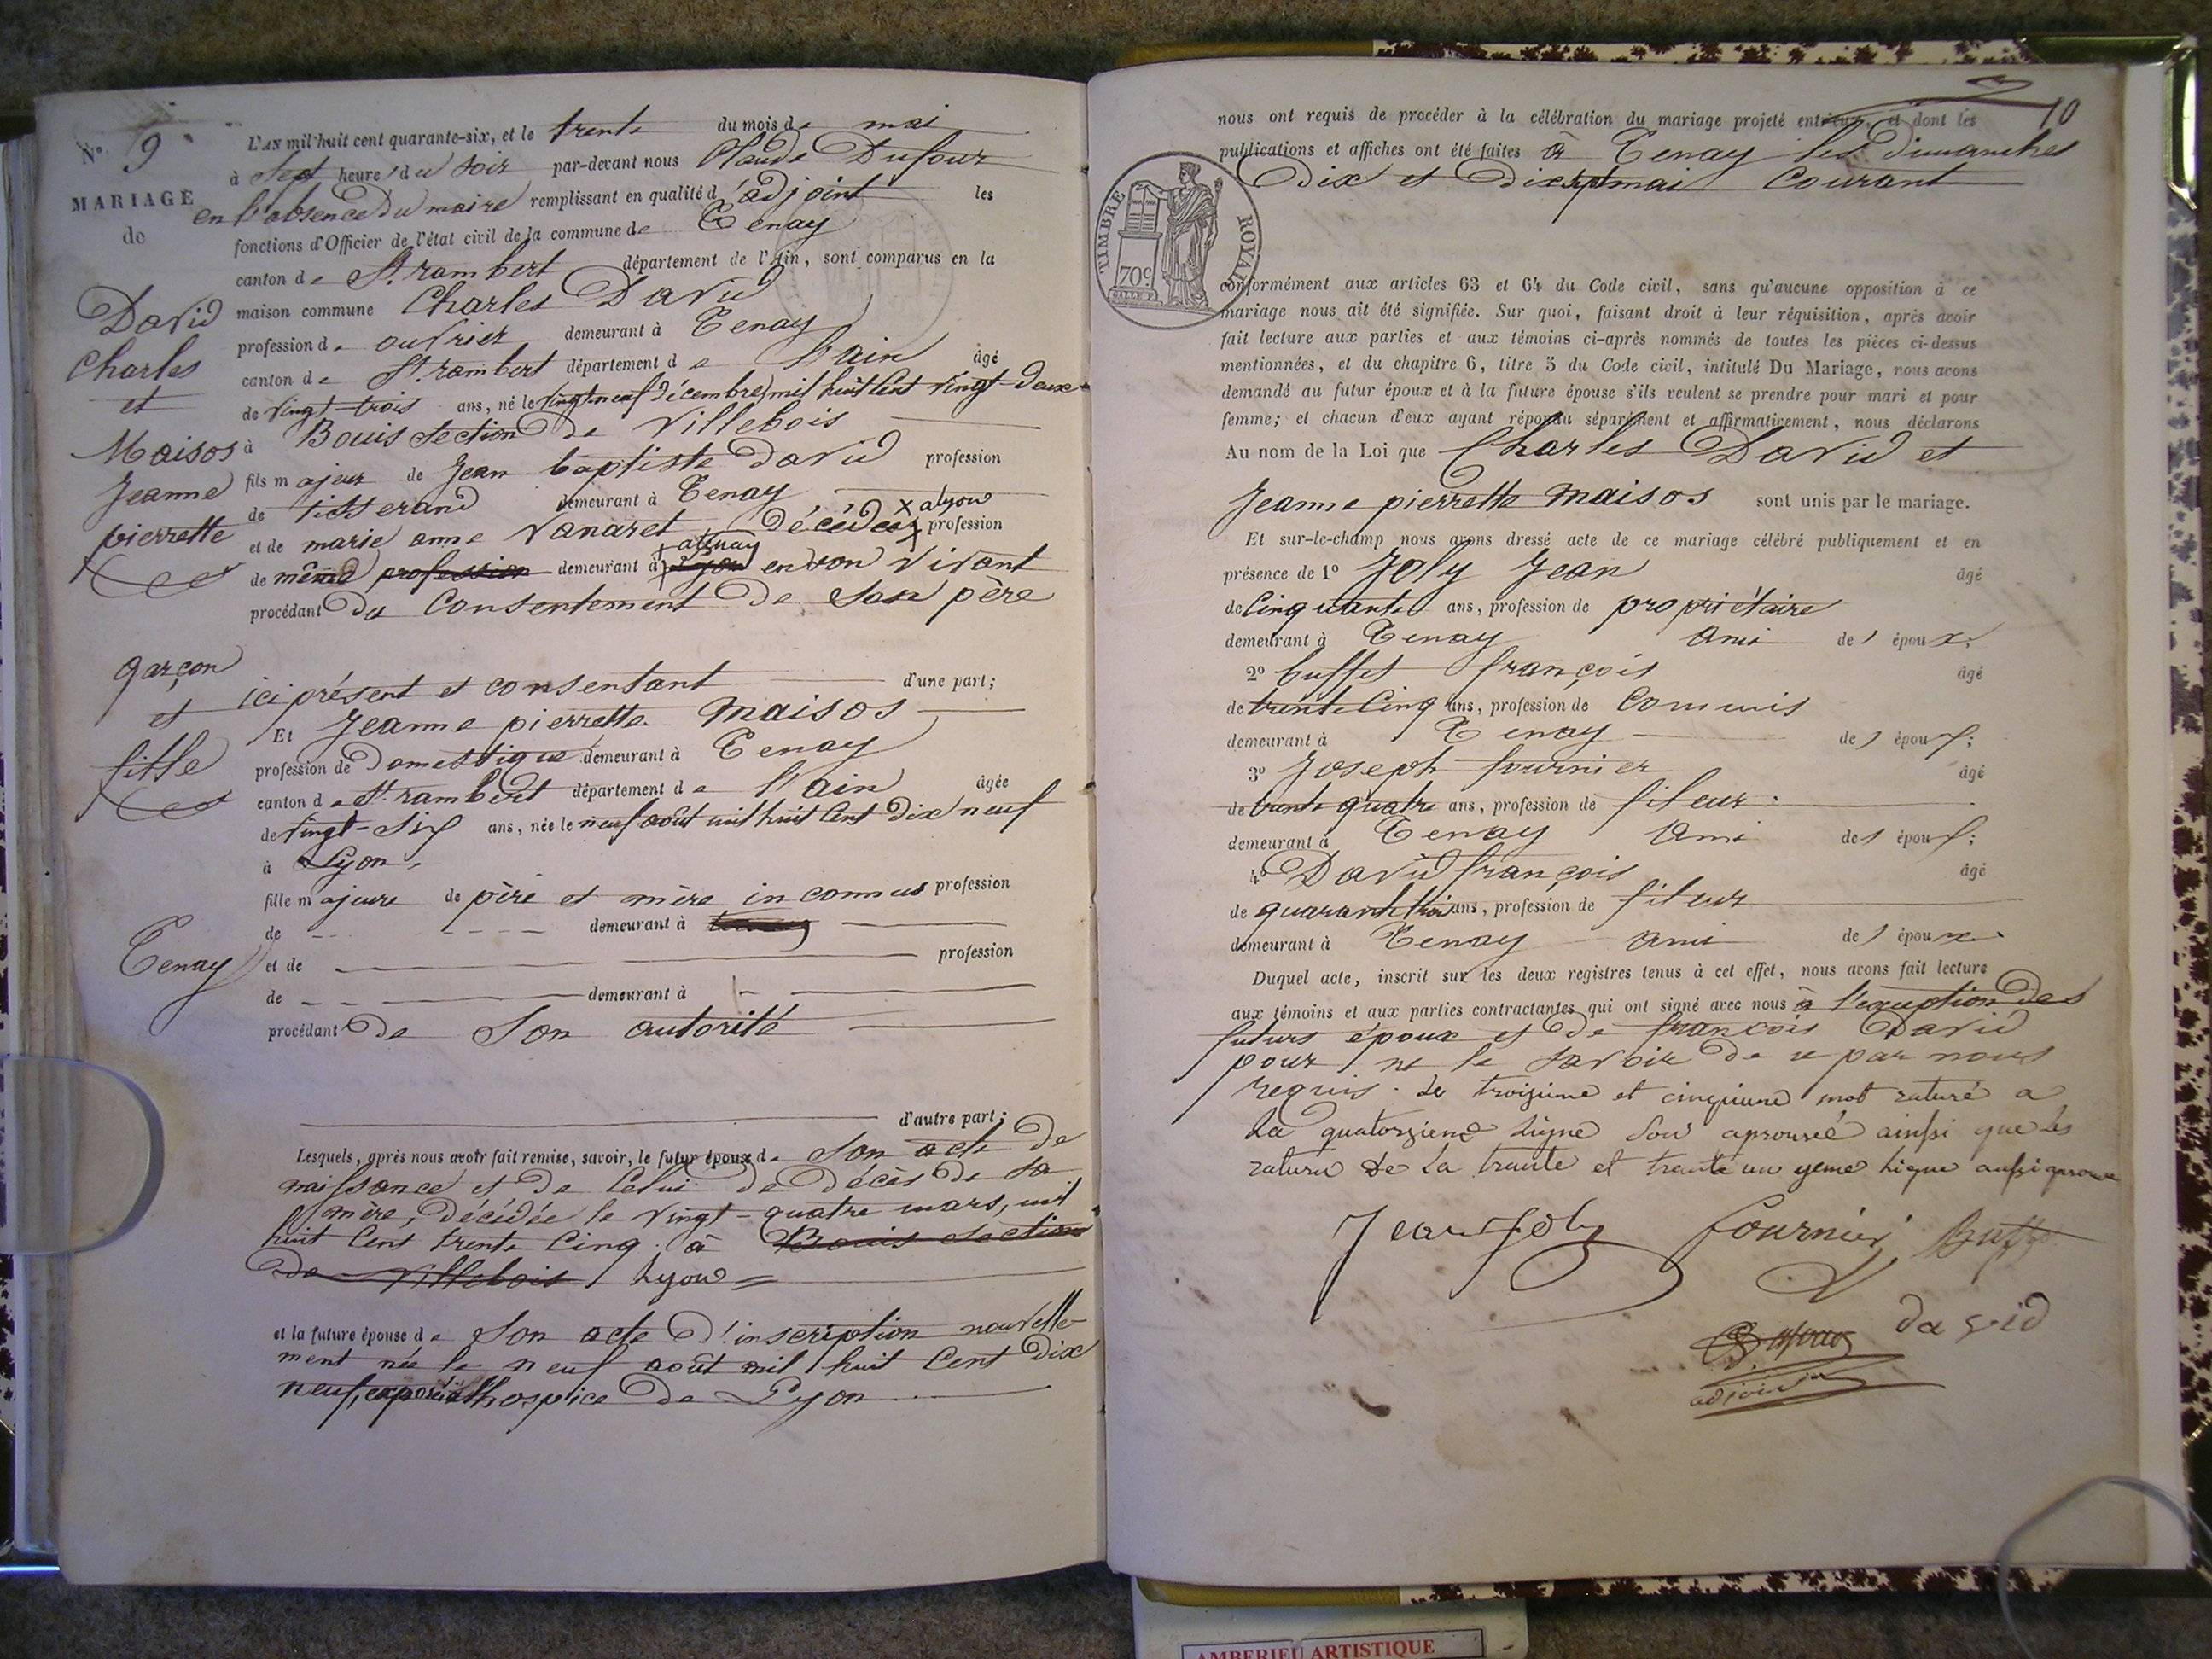 N.º 9
MARIAGE
de
David
Charles
et
Maisos
Jeanne
pierrette
garçon
et
fille
Tenay
L'AN mil huit cent quarante-six, et le trente du mois de mai
à sept heures du soir par-devant nous Claude Dufour
en l'absence du maire remplissant en qualité d'adjoint les
fonctions d'Officier de l'état civil de la commune de Tenay
canton de St. rambert département de l'Ain, sont comparus en la
maison commune Charles David
profession de ouvrier demeurant à Tenay
canton de St. rambert département de l'ain âgé
de vingt-trois ans, né le vingt neuf décembre, mil huit cent vingt-deux
à Bouis section de Villebois
fils majeur de Jean baptiste David profession
de tisserand demeurant à Tenay
et de marie anne Vanaret décédée x a lyon profession
de même profession demeurant à x a tenay lyon en son vivant
procédant du consentement de son père
ici présent et consentant d'une part;
Et Jeanne pierrette maisos
profession de domestique demeurant à Tenay
canton de St. rambert département de l'ain âgée
de vingt-six ans, née le neuf août mil huit cent dix neuf
à Lyon,
fille majeure de père et mère inconnus profession
de demeurant à
et de profession
de demeurant à
procédant de son autorité
d'autre part;
Lesquels, après nous avoir fait remise, savoir, le futur époux de son acte de
naissance et de celui de décès de sa
mère, décédée le vingt-quatre mars, mil
huit cent trente cinq à Bouis section
de Villebois lyon =
et la future épouse de son acte d'inscription nouvelle-
ment née le neuf août mil huit cent dix
neuf, exposée à l'hospice de Lyon
10
nous ont requis de procéder à la célébration du mariage projeté entr'eux, et dont les
publications et affiches ont été faites à Tenay les dimanches
dix et dix sept mai courant
TIMBRE ROYAL
70c
conformément aux articles 63 et 64 du Code civil, sans qu'aucune opposition à ce
mariage nous ait été signifiée. Sur quoi, faisant droit à leur réquisition, après avoir
fait lecture aux parties et aux témoins ci-après nommés de toutes les pièces ci-dessus
mentionnées, et du chapitre 6, titre 5 du Code civil, intitulé Du Mariage, nous avons
demandé au futur époux et à la future épouse s'ils veulent se prendre pour mari et pour
femme; et chacun d'eux ayant répondu séparément et affirmativement, nous déclarons
Au nom de la Loi que Charles David et
Jeanne pierrette maisos sont unis par le mariage.
Et sur-le-champ nous avons dressé acte de ce mariage célébré publiquement et en
présence de 1º Joly Jean âgé
de cinquante ans, profession de propriétaire
demeurant à Tenay ami de l'époux;
2º buffet françois âgé
de trente cinq ans, profession de commis
demeurant à Tenay de l'épouse;
3º Joseph fournier âgé
de trente quatre ans, profession de fileur
demeurant à Tenay ami de l'épouse;
4º David françois âgé
de quarante trois ans, profession de fileur
demeurant à Tenay ami de l'époux
Duquel acte, inscrit sur les deux registres tenus à cet effet, nous avons fait lecture
aux témoins et aux parties contractantes qui ont signé avec nous à l'exception des
futurs époux et de françois David
pour ne le savoir de ce par nous
requis. Le troizieme et cinquieme mot raturé a
la quatorzieme ligne aprouvé ainsi que les
rature de la trante et trante un yeme ligne aussi
Jean Joly fournier Buffet
david
Dufour
adjoint
AMBERIEU ARTISTIQUE